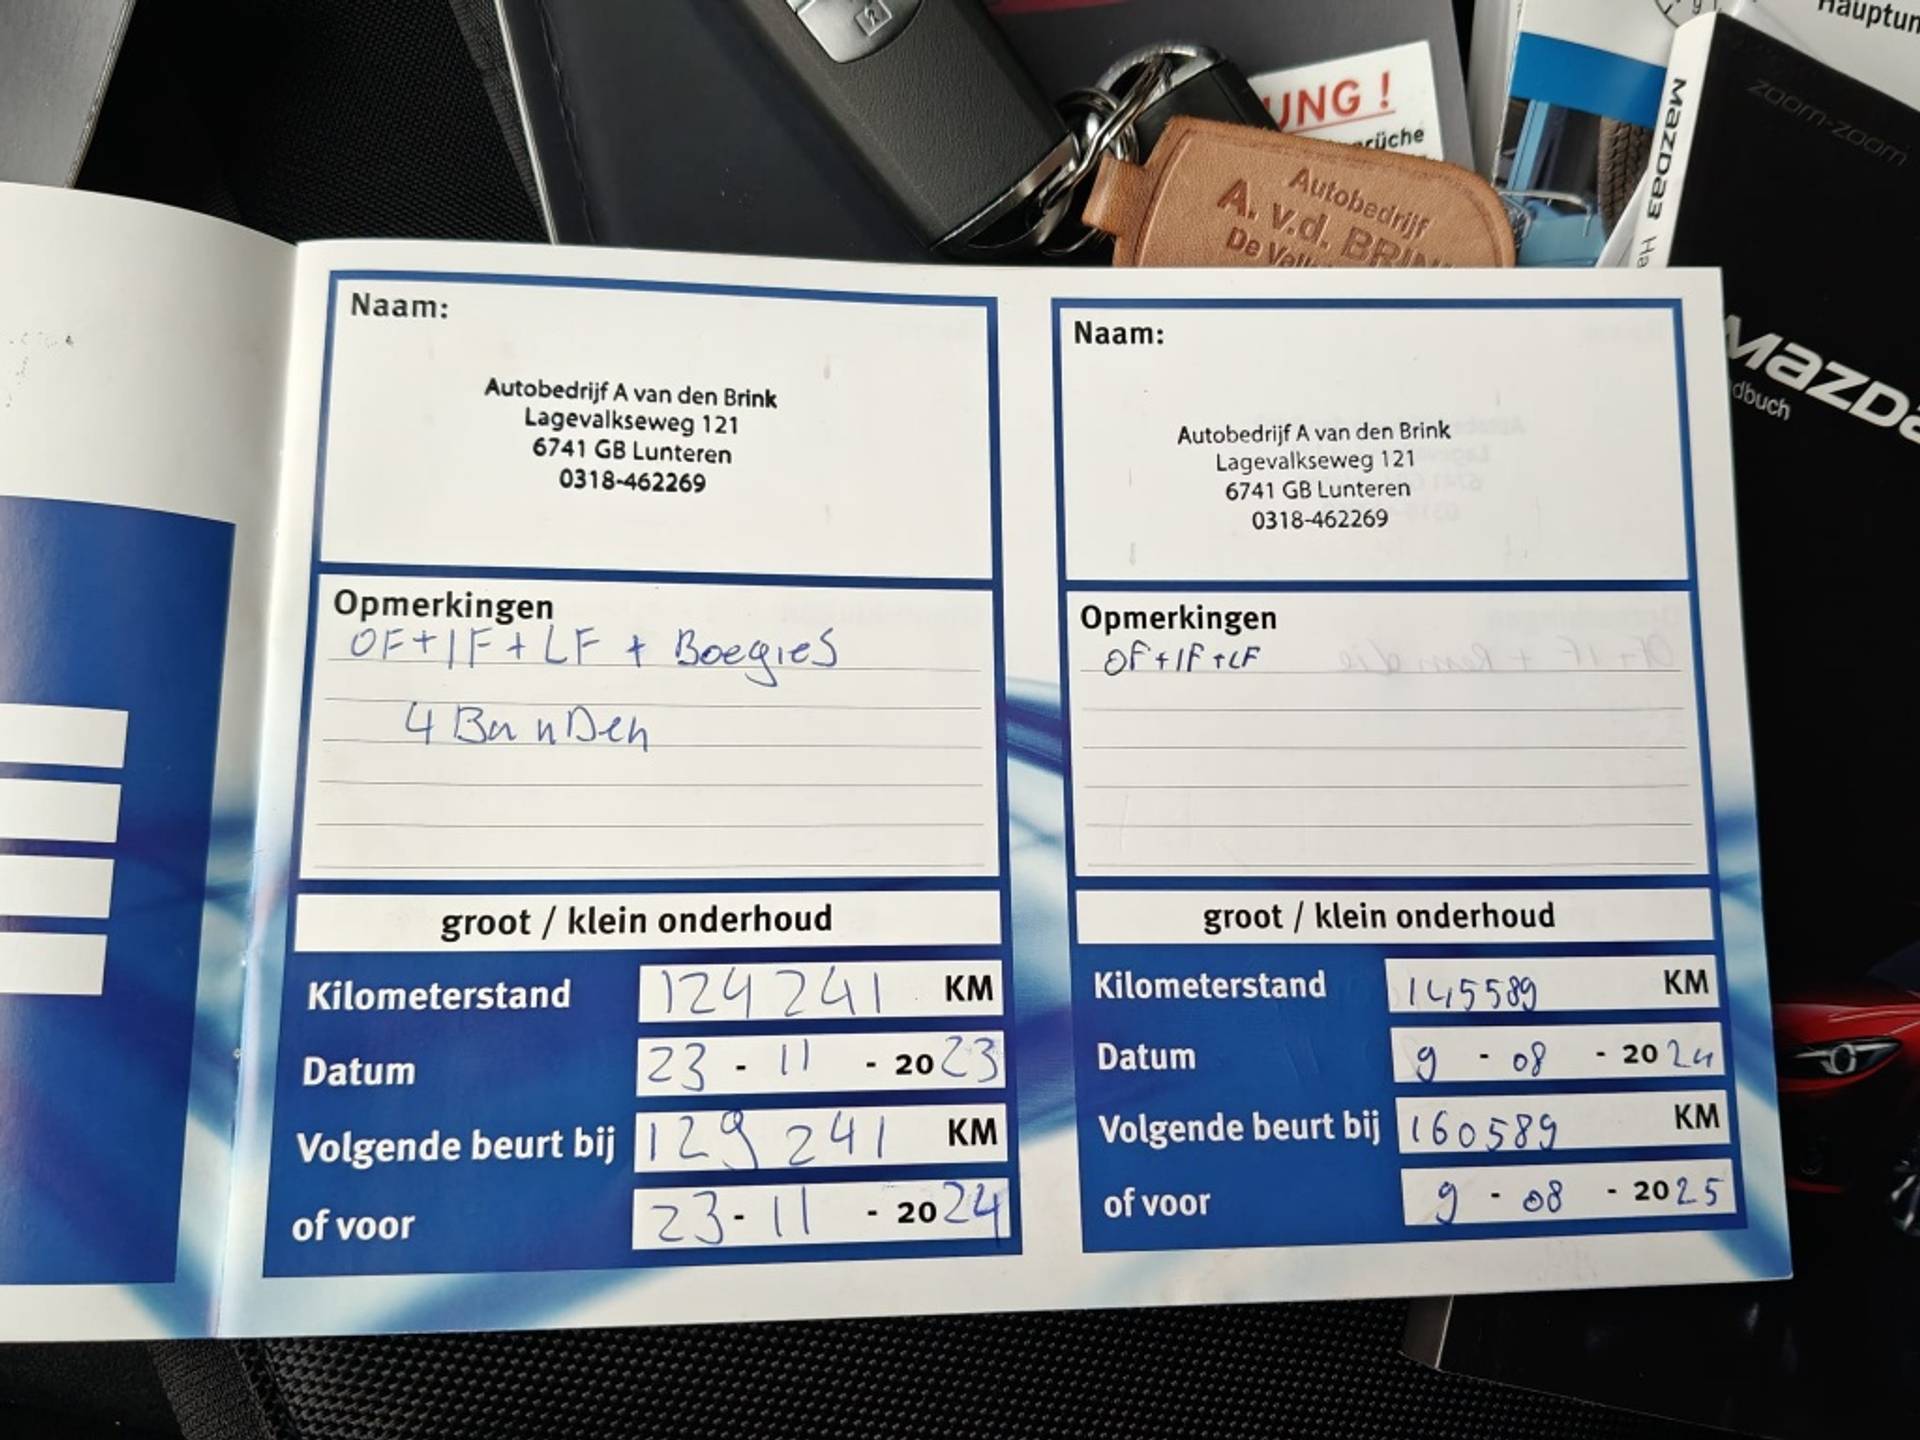 UNG !
rüche
Hauptun
zoom-zoom
Mazda3 Ha
Mazda
dbuch
Autobedrijf
A. v.d. BRIN
De Valk
Naam:
Autobedrijf A van den Brink
Lagevalkseweg 121
6741 GB Lunteren
0318-462269
Opmerkingen
OF+IF+LF + BoegieS
4 BanDen
groot / klein onderhoud
Kilometerstand 124241 KM
Datum 23 - 11 - 2023
Volgende beurt bij 129241 KM
of voor 23 - 11 - 2024
Naam:
Autobedrijf A van den Brink
Lagevalkseweg 121
6741 GB Lunteren
0318-462269
Opmerkingen
OF+IF+LF
groot / klein onderhoud
Kilometerstand 145589 KM
Datum 9 - 08 - 2024
Volgende beurt bij 160589 KM
of voor 9 - 08 - 2025